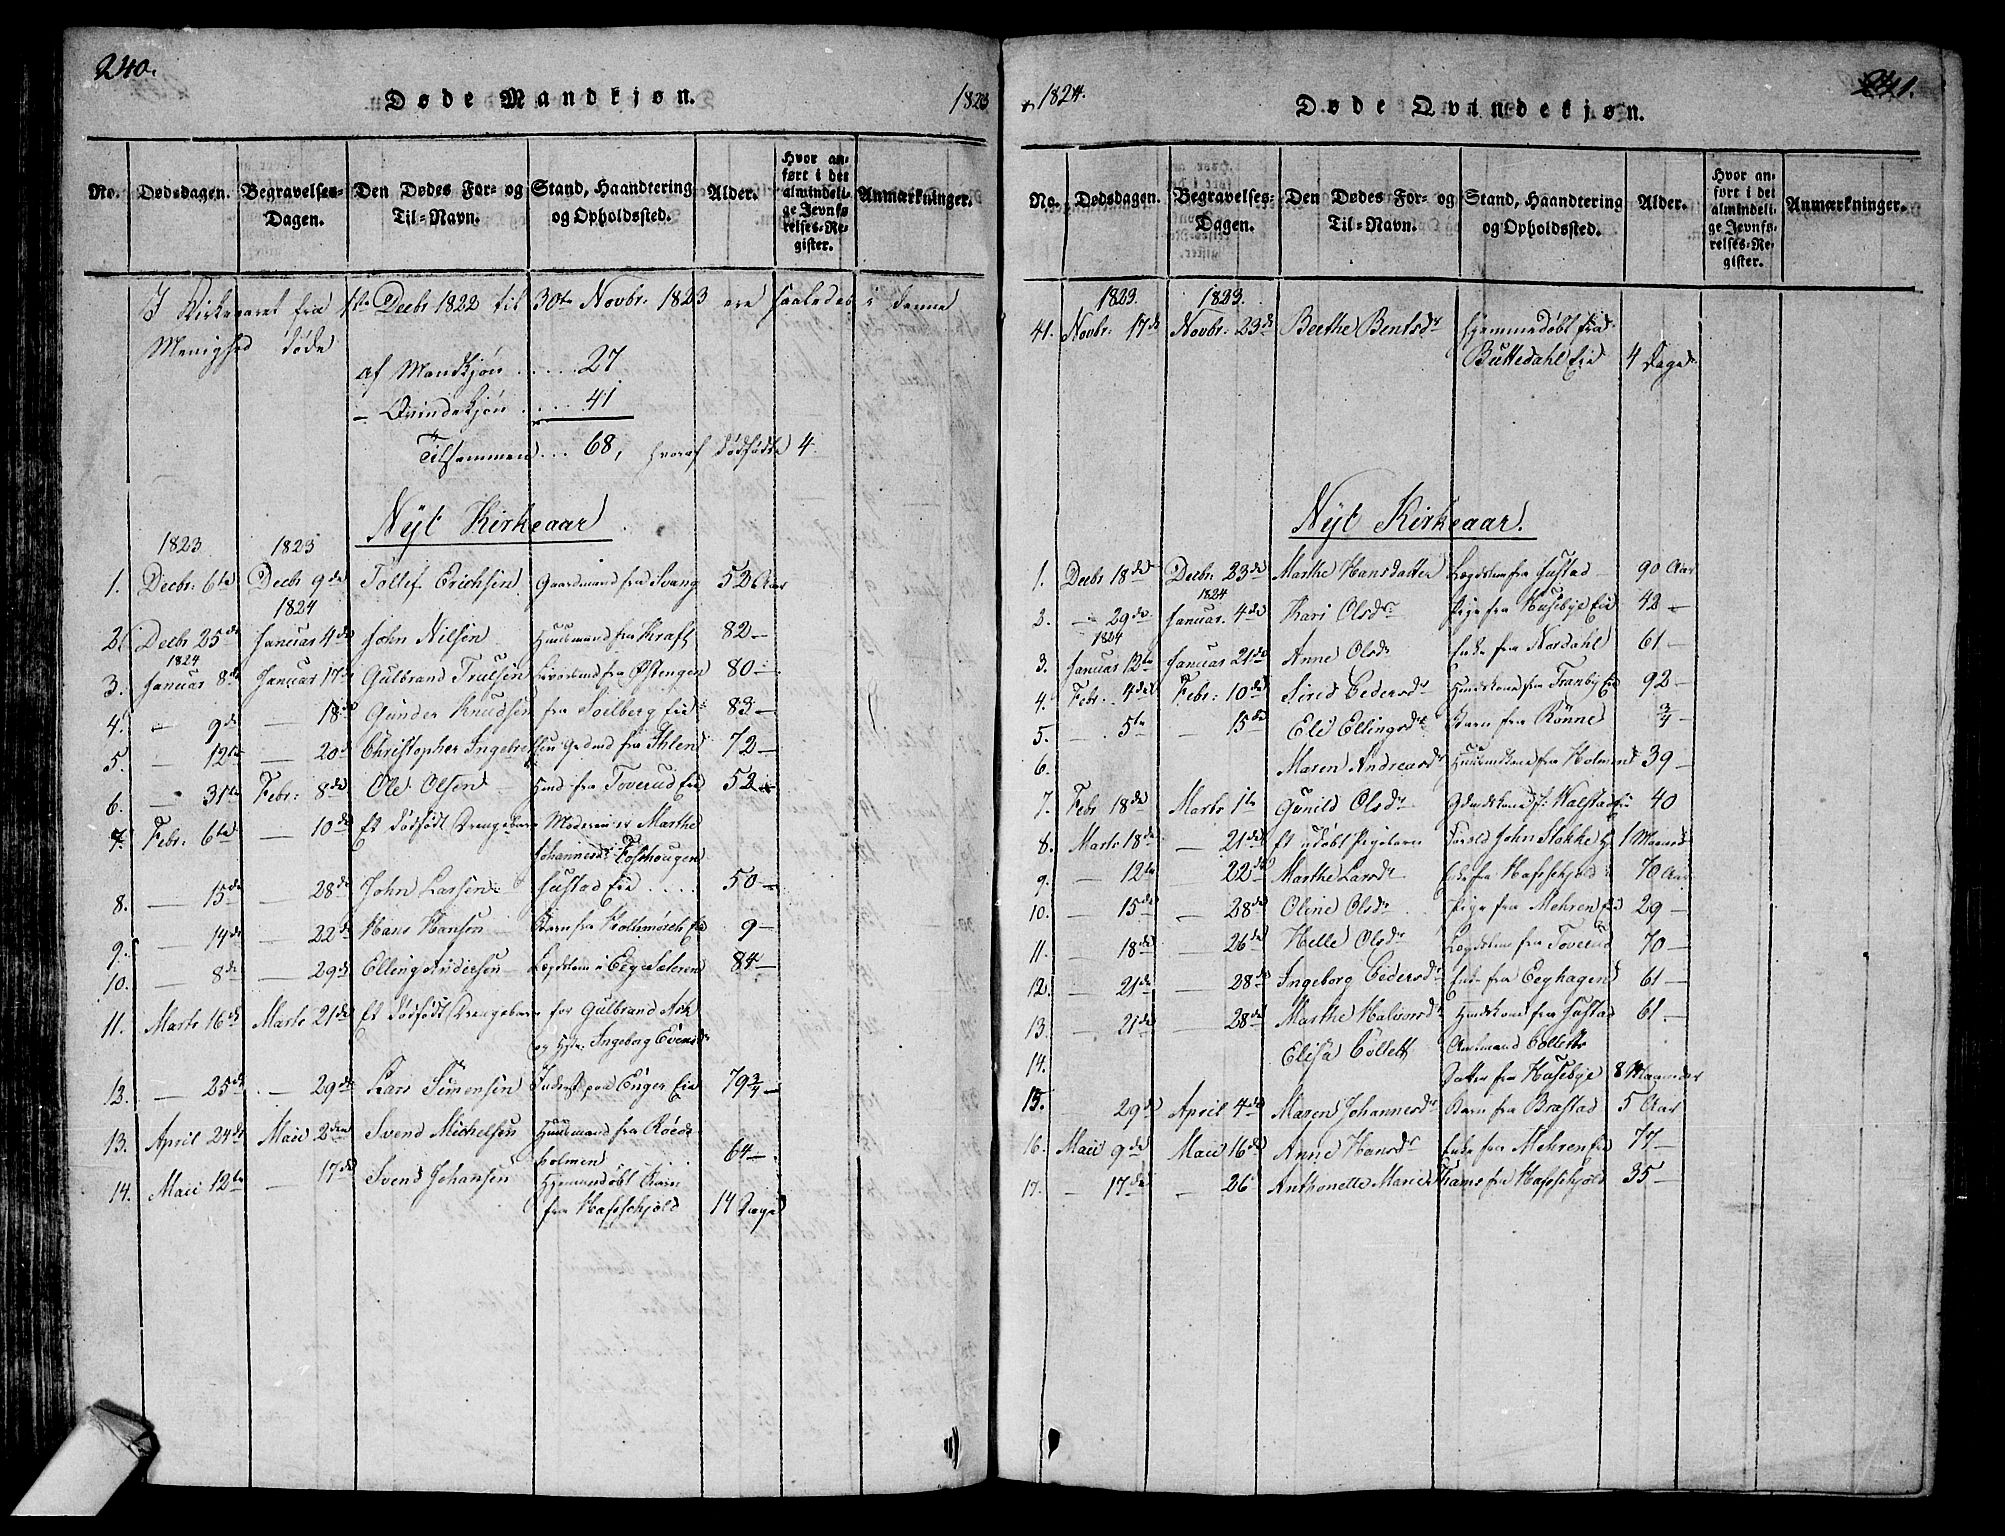 240.
Døde Mandkjøn.
1823
No. Dødsdagen. Begravelses-Dagen. Den Dødes For- og Til-Navn. Stand, Haandtering og Opholdssted. Alder. Hvor anført i det almindelige Jevnførelses-Register. Anmærkninger.
I Kirkeaaret fra 1ste Decbr 1822 til 30te Novbr: 1823 ere saaledes i denne
Menighed døde
af Mandkjøn ..... 27
- Qvindekjøn .... 41
Tilsammen ... 68, hvoraf dødfødte 4.
Nyt Kirkeaar
1823 1823
1. Decbr: 6te Decbr 9de Tollif Erichsen Gaardmand fra Svang 52 Aar
1824
2. Decbr 25de Januar 4de John Nilsen Huusmand fra Kraft 82 -
1824
3. Januar 8de Januar 17de Gulbrand Truelsen fra Østengen 80 -
4. - 9de - 18de Gunder Knudsen fra Solberg Eie 83 -
5. - 12te - 20de Christopher Ingebretsen Gdmd fra Ihlen 72 -
6. - 31te Febr: 8de Ole Olsen Hmd fra Toverud Eie 52 -
7. Febr: 6te - 10de Et dødfødt Drengebarn Moderen er Marthe
Johannesdr Foshougen
8. - 15de - 28de John Larsen Justad Eie .... 50 -
9. - 14de - 22de Hans Hansen Barn fra Eie 9 -
10. - 8de - 29de Elling Andersen Lægdslem i Eeg Sæteren 84 -
11. Marts 16de Marts 21de Et dødfødt Drengebarn for Gulbrand Ask
og Hstr: Ingeborg Evensdr
12. - 25de - 29de Lars Simensen Inderst paa Enger Eie 79 3/4 -
13. April 24de Maii 2den Svend Michelsen Huusmand fra Røeds-
holmen 64 -
14. Maii 12te - 17de Svend Johansen Hjemmedøbt Barn
fra Hafschjold 14 Dage
1824.
241.
Døde Qvindekjøn.
No. Dødsdagen. Begravelses-Dagen. Den Dødes For- og Til-Navn. Stand, Haandtering og Opholdssted. Alder. Hvor anført i det almindelige Jevnførelses-Register. Anmærkninger.
1823. 1823.
41. Novbr: 17de Novbr: 23de Berthe Bentsdr Hjemmedøbt fra
Buttedahl Eie 4 Dage
Nyt Kirkeaar.
1. Decbr 18de Decbr: 23de Marthe Hansdatter Lægdslem fra Justad 90 Aar
1824
2. - 29de Januar. 4de Kari Olsdr Pige fra Husebye Eie 42 -
1824
3. Januar 12te Januar 21de Anne Olsdr Enke fra Nordahl 61 -
4. Febr. 4de Febr: 10de Sired Pedersdr Huuskone fra Tranby Eie 92 -
5. - 5te - 15de Eli Ellingsdr Barn fra Rønne 3/4 -
6. Maren Andreasdr Huusmdkone fra Holmen 39 -
7. Febr 18de Marts 1te Gunild Olsdr Gdmdskone fr: Halstad 40
8. Marts 18de - 21de Et udøbt Pigebarn Foræld John Stokke 1 Maaned
9. - 12te - 22de Marthe Larsdr Enke fra Hafschjold 70 Aar
10. - 15de - 28de Oline Olsdr Pige fra Mehren Eie 29 -
11. - 18de - 26de Helle Olsdr Lægdslem fra Toverud 70 -
12. - 21de - 28de Ingeborg Pedersdr Enke fra Eeghagen 61 -
13. - 21de - 28de Marthe Halvorsdr Hmdskone fra Justad 61 -
14. Elisa Collett Amtmand Colletts
Datter fra Husebye 8 Maaneder
15. 29de April 4de Maren Johannesdr Barn fra Bræstad 5 Aar
16. Maii 9de Maii 16de Anne Hansdr Enke fra Mehren Eie 77 -
17. - 17de - 26 Anthonette Marie Thams fra Hafschjold 35 -